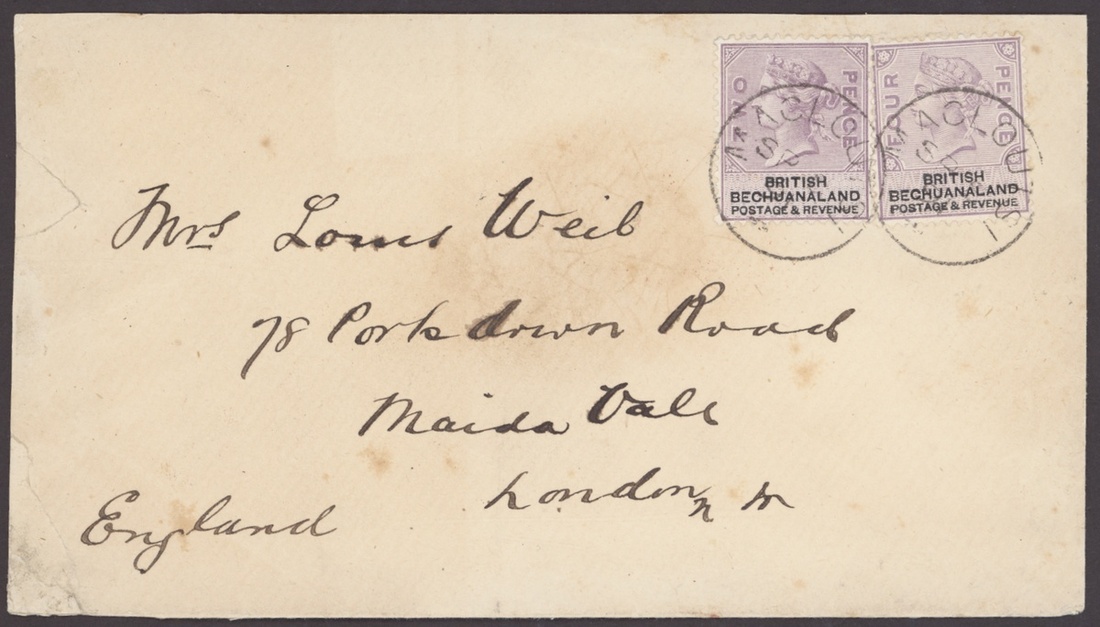 TWO PENCE
BRITISH
BECHUANALAND
POSTAGE & REVENUE
FOUR PENCE
BRITISH
BECHUANALAND
POSTAGE & REVENUE
MACLOUTSI
SP
MACLOUTSI
SP
Mrs Louis Weil
78 Portsdown Road
Maida Vale
London W
England